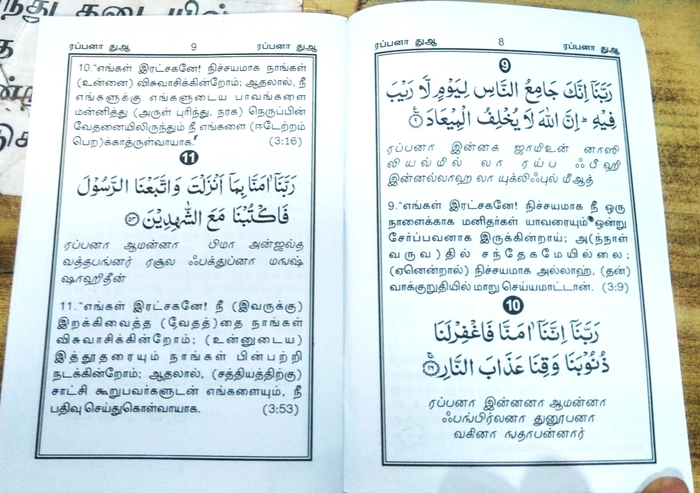 ரப்பனா துஆ 8 ரப்பனா துஆ
9
رَبَّنَآ اِنَّكَ جَامِعُ النَّاسِ لِيَوْمٍ لَّا رَيْبَ
فِيْهِ ؕ اِنَّ اللّٰهَ لَا يُخْلِفُ الْمِيْعَادَ ۝٩
ரப்பனா இன்னக ஜாமிஉன் னாஸி
லியவ்மில் லா ரய்ப ஃபீஹி
இன்னல்லாஹ லா யுக்லிஃபுல் மீஆத்
9.“எங்கள் இரட்சகனே! நிச்சயமாக நீ ஒரு
நாளைக்காக மனிதர்கள் யாவரையும் ஒன்று
சேர்ப்பவனாக இருக்கின்றாய்; அ(ந்நாள்
வருவ)தில் சந்தேகமேயில்லை;
(ஏனென்றால்) நிச்சயமாக அல்லாஹ், (தன்)
வாக்குறுதியில் மாறு செய்யமாட்டான். (3:9)
10
رَبَّنَآ اِنَّنَآ اٰمَنَّا فَاغْفِرْلَنَا
ذُنُوْبَنَا وَقِنَا عَذَابَ النَّارِ ۝١٦
ரப்பனா இன்னனா ஆமன்னா
ஃபங்பிர்லனா துனூபனா
வகினா ஙதாபன்னார்
ரப்பனா துஆ 9 ரப்பனா துஆ
10.“எங்கள் இரட்சகனே! நிச்சயமாக நாங்கள்
(உன்னை) விசுவாசிக்கின்றோம்; ஆதலால், நீ
எங்களுக்கு எங்களுடைய பாவங்களை
மன்னித்து (அருள் புரிந்து, நரக) நெருப்பின்
வேதனையிலிருந்தும் நீ எங்களை (ஈடேற்றம்
பெற)க்காத்தருள்வாயாக. (3:16)
11
رَبَّنَآ اٰمَنَّا بِمَآ اَنْزَلْتَ وَاتَّبَعْنَا الرَّسُوْلَ
فَاكْتُبْنَا مَعَ الشّٰهِدِيْنَ ۝٥٣
ரப்பனா ஆமன்னா பிமா அன்ஜல்த
வத்தபங்னர் ரசூல ஃபக்துப்னா மஙஷ்
ஷாஹிதீன்
11.“எங்கள் இரட்சகனே! நீ (இவருக்கு)
இறக்கிவைத்த (வேதத்)தை நாங்கள்
விசுவாசிக்கின்றோம்; (உன்னுடைய)
இத்தூதரையும் நாங்கள் பின்பற்றி
நடக்கின்றோம்; ஆதலால், (சத்தியத்திற்கு)
சாட்சி கூறுபவர்களுடன் எங்களையும், நீ
பதிவு செய்துகொள்வாயாக. (3:53)